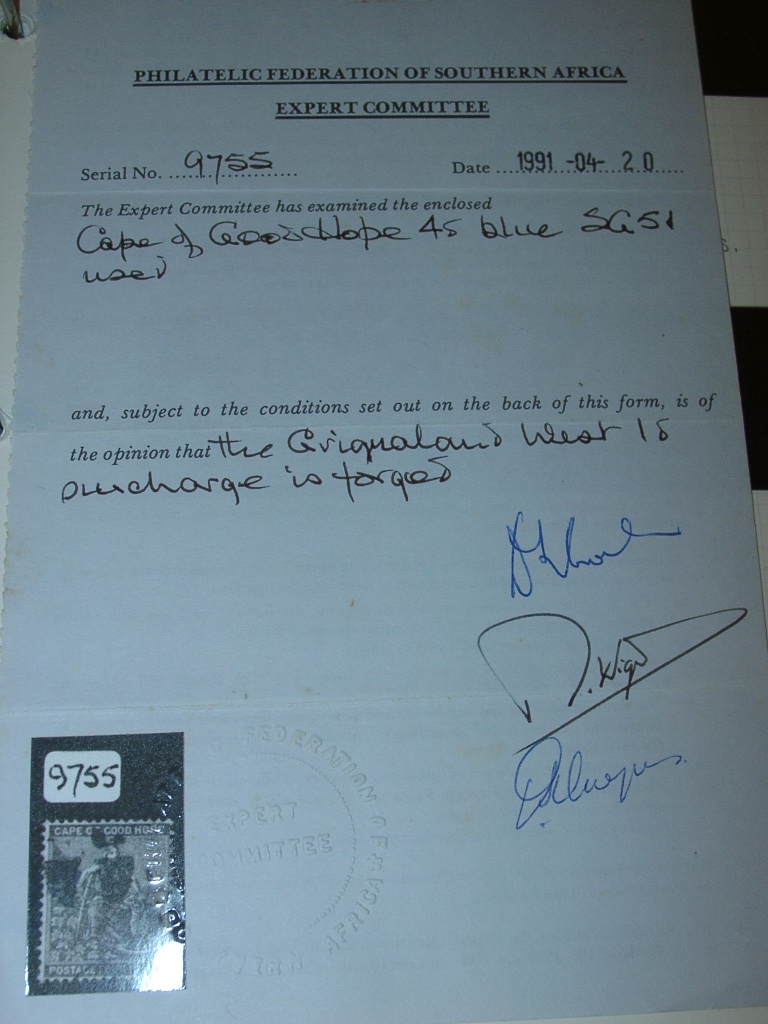 PHILATELIC FEDERATION OF SOUTHERN AFRICA
EXPERT COMMITTEE
Serial No. 9755 Date 1991-04-20
The Expert Committee has examined the enclosed
Cape of Good Hope 4d blue SG51
used
and, subject to the conditions set out on the back of this form, is of
the opinion that the Griqualand West 1d
surcharge is forged
9755
CAPE OF GOOD HOPE
POSTAGE
FEDERATION OF
EXPERT
COMMITTEE
AFRICA